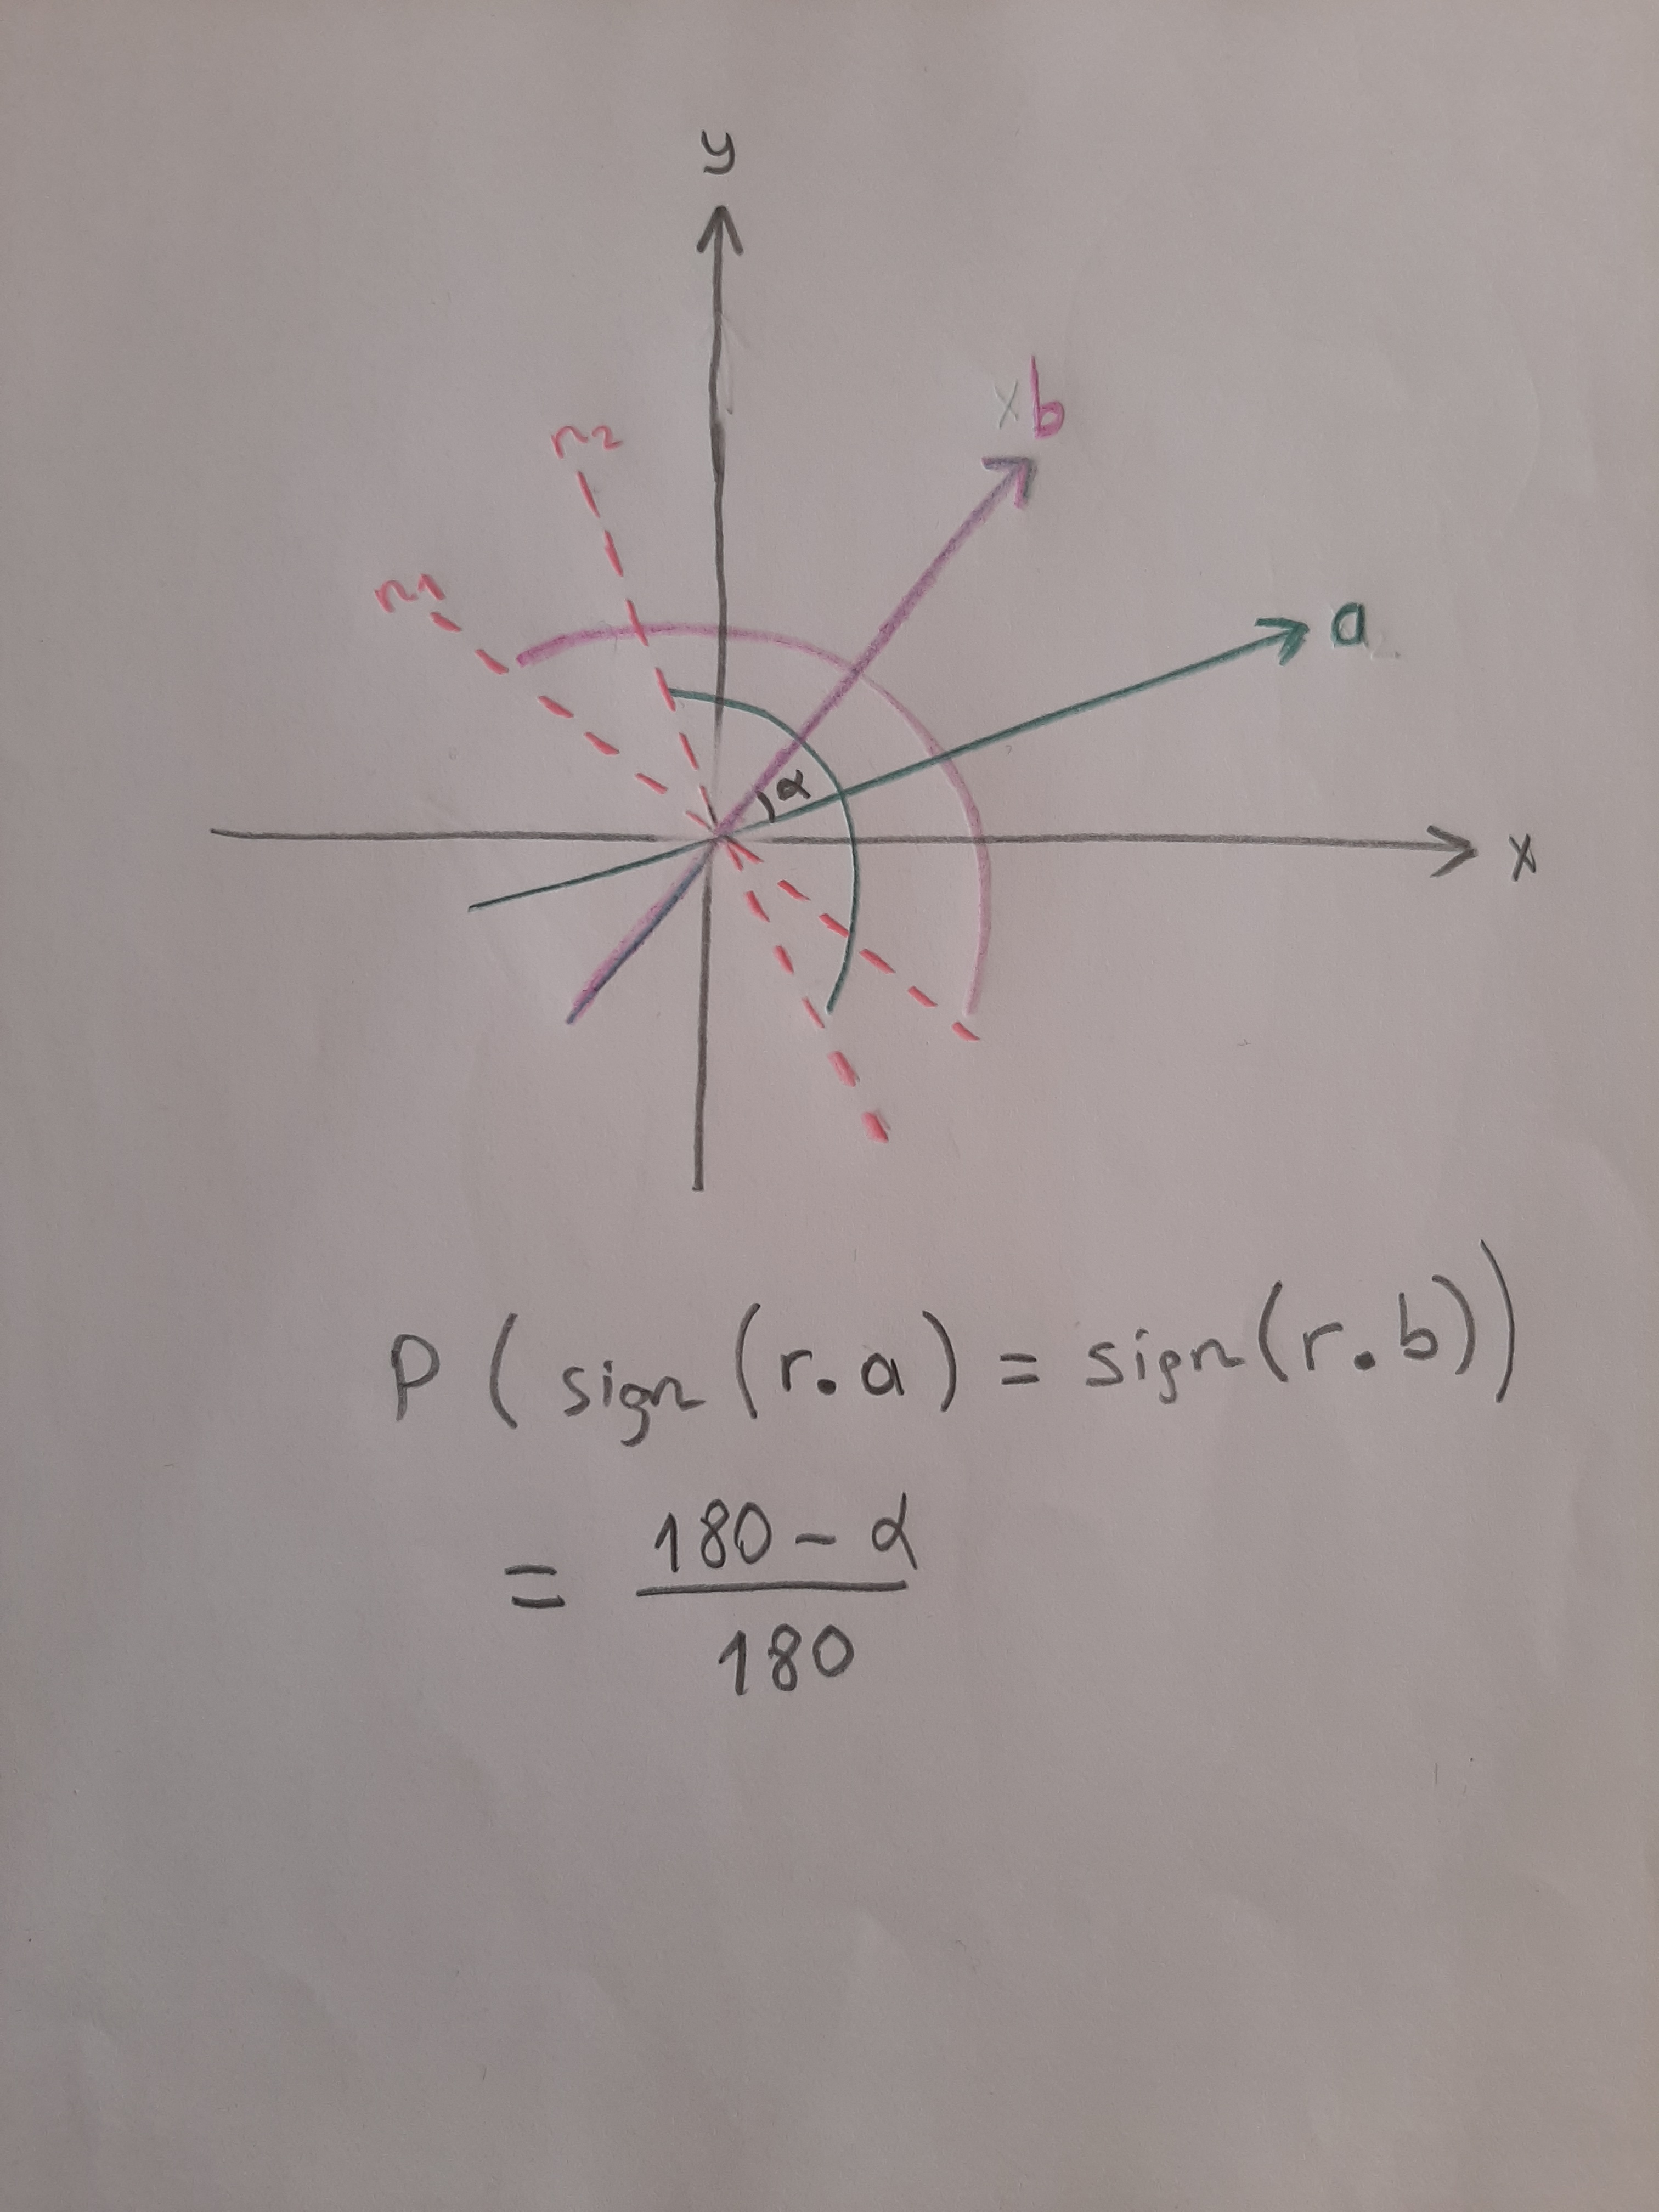 y
x b
r2
r1
a
α
x
P ( sign (r.a) = sign(r.b))
= 180 - α
180